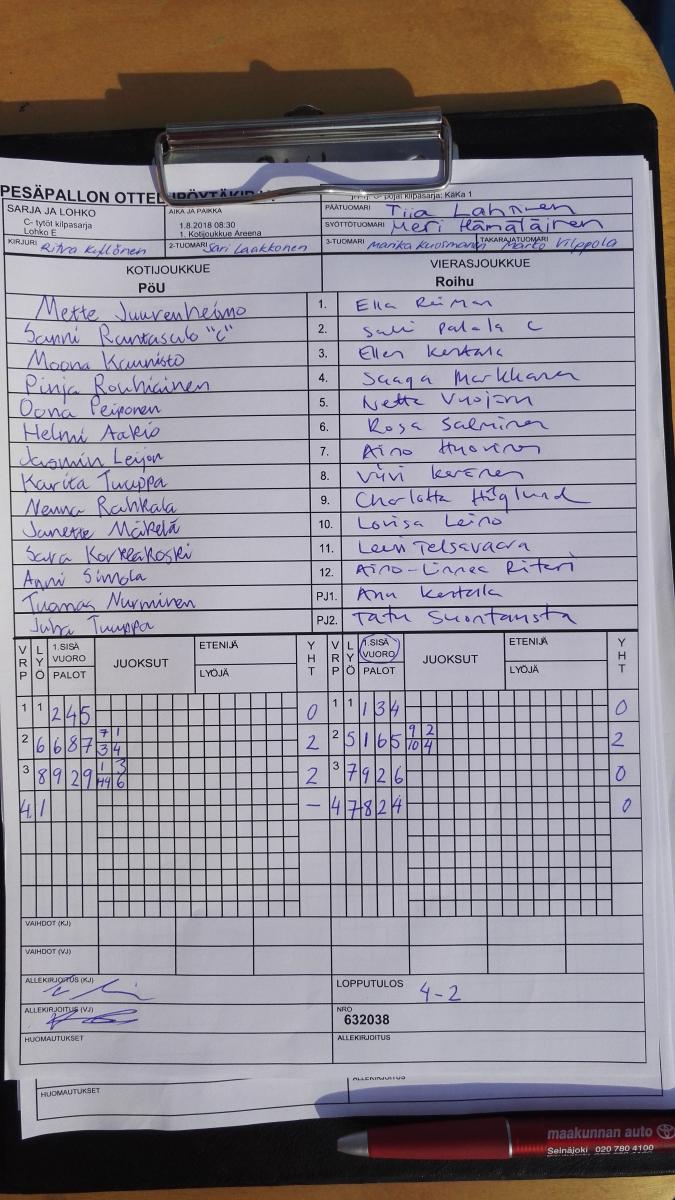 PESÄPALLON OTTELUPÖYTÄKIRJA
C- pojat kilpasarja: KaKa 1
SARJA JA LOHKO
C- tytöt kilpasarja
Lohko E
AIKA JA PAIKKA
1.8.2018 08:30
1. Kotijoukkue Areena
PÄÄTUOMARI Tiia Lahtinen
SYÖTTÖTUOMARI Meri Hämäläinen
KIRJURI Ritva Kyllönen
2-TUOMARI Sari Laakkonen
3-TUOMARI Marika Kuosmanen
TAKARAJATUOMARI Marko Vilppola
KOTIJOUKKUE VIERASJOUKKUE
PöU Roihu
Mette Juurenheimo 1. Ella Reiman
Sanni Rantasalo "C" 2. Salli Palala C
Moona Kaunisto 3. Ellen Kertala
Pinja Rouhiainen 4. Saaga Markkanen
Oona Peiponen 5. Netta Vuojari
Helmi Aakio 6. Rosa Salminen
Jasmin Leijon 7. Aino Huovinen
Karita Tuuppa 8. Viivi Keränen
Nenna Rahkala 9. Charlotta Höglund
Janette Mäkelä 10. Lovisa Leino
Sara Korkeakoski 11. Leeni Telsavaara
Anni Simola 12. Aino-Linnea Riteri
Tuomas Nurminen PJ1. Anu Kertala
Juha Tuuppa PJ2. Tatu Suontausta
VRP LYÖ 1.SISÄ VUORO PALOT JUOKSUT ETENIJÄ LYÖJÄ YHT VRP LYÖ 1.SISÄ VUORO PALOT JUOKSUT ETENIJÄ LYÖJÄ YHT
1 1 2 4 5 0 1 1 1 3 4 0
2 6 6 8 7 7 1 3 4 2 2 5 1 6 5 9 2 10 4 2
3 8 9 2 9 1 3 6 2 3 7 9 2 6 0
4 1 – 4 7 8 2 4 0
VAIHDOT (KJ)
VAIHDOT (VJ)
ALLEKIRJOITUS (KJ)
LOPPUTULOS 4-2
ALLEKIRJOITUS (VJ)
NRO
632038
HUOMAUTUKSET ALLEKIRJOITUS
HUOMAUTUKSET ALLEKIRJOITUS
maakunnan auto
Seinäjoki 020 780 4100